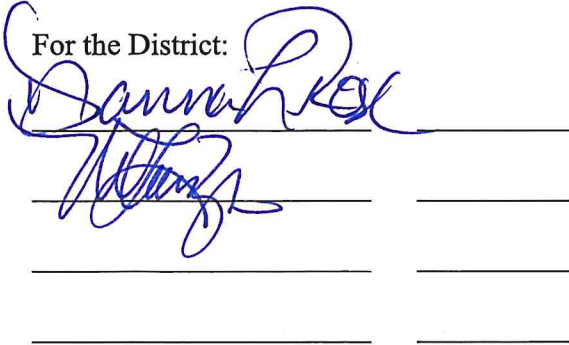 For the District:
Hannah Rose